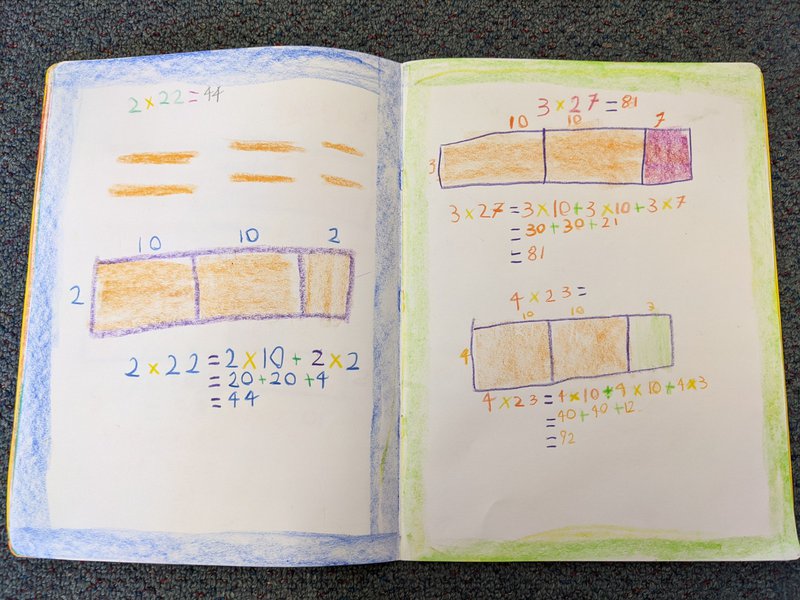 2 × 22 = 44
10 10 2
2
2 × 22 = 2 × 10 + 2 × 2
= 20 + 20 + 4
= 44
3 × 27 = 81
10 10 7
3
3 × 27 = 3 × 10 + 3 × 10 + 3 × 7
= 30 + 30 + 21
= 81
4 × 23 =
10 10 3
4
4 × 23 = 4 × 10 + 4 × 10 + 4 × 3
= 40 + 40 + 12
= 92